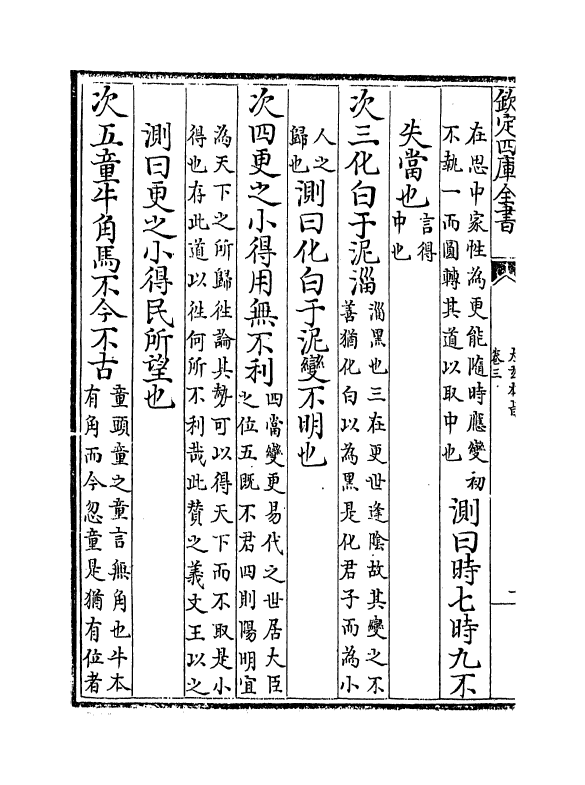 欽定四庫全書
太玄本旨
卷三
二
在思中家性為更能隨時應變初
不執一而圓轉其道以取中也
測曰時七時九不
失當也
言得
中也
次三化白于泥淄
淄黑也三在更世逢陰故其變之不
善猶化白以為黑是化君子而為小
人之
歸也
測曰化白于泥變不明也
次四更之小得用無不利
四當變更易代之世居大臣
之位五既不君四則陽明宜
為天下之所歸徃論其勢可以得天下而不取是小
得也存此道以徃何所不利哉此贊之義文王以之
測曰更之小得民所望也
次五童牛角馬不今不古
童頭童之童言無角也牛本
有角而今忽童是猶有位者